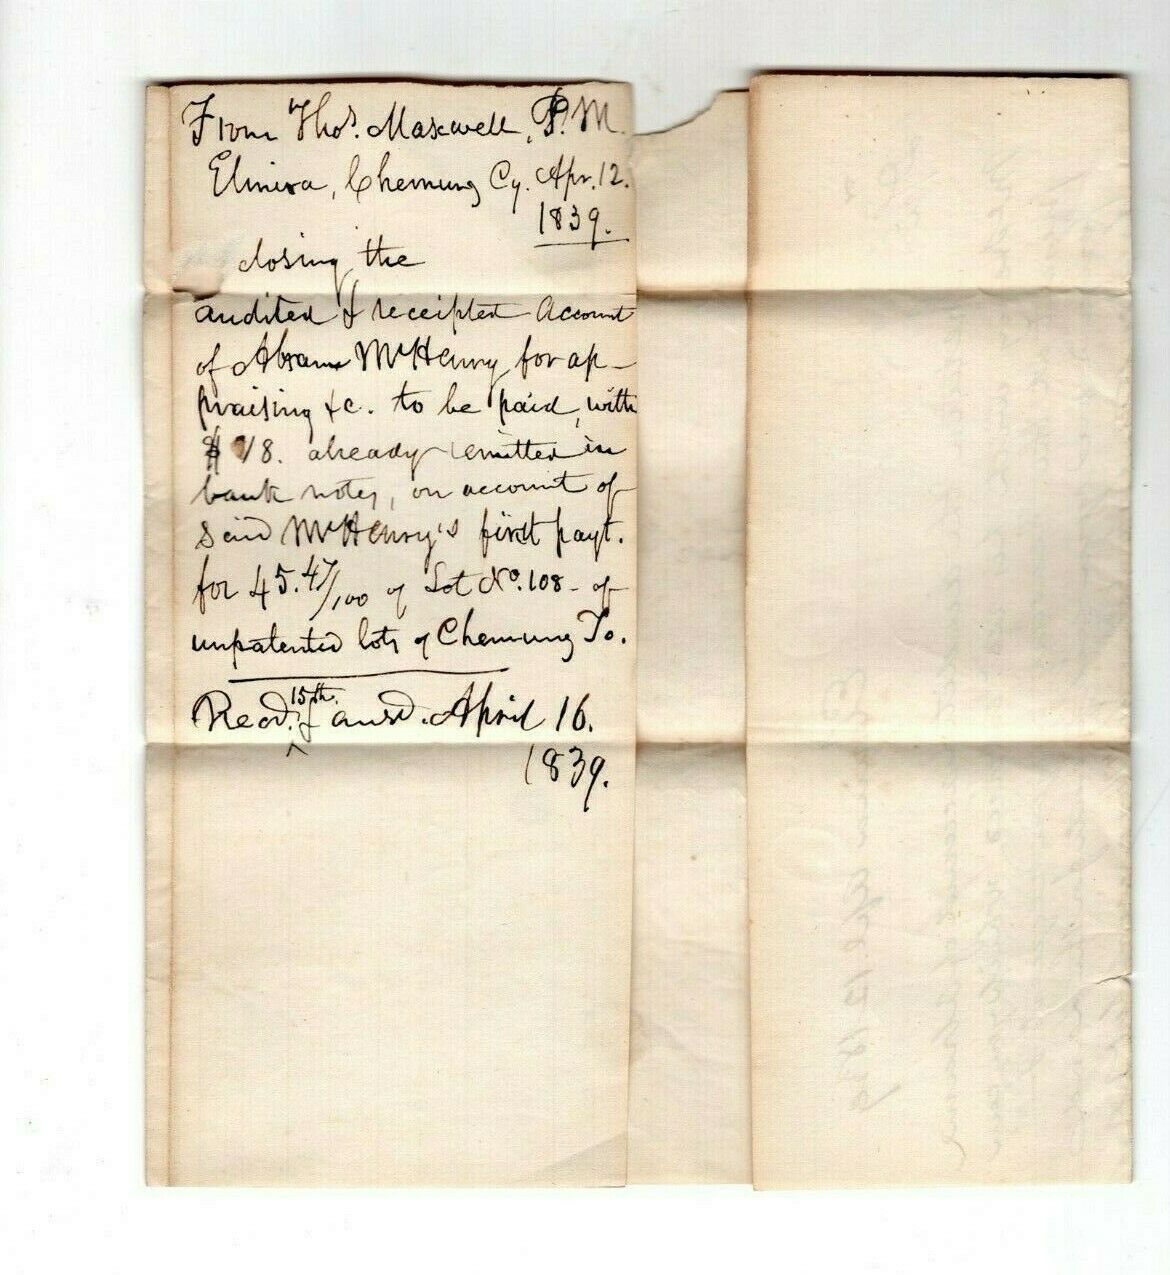 From Thos. Maxwell, P.M.
Elmira, Chemung Cy. Apr. 12.
1839.
closing the
audited & receipted Account
of Abram McHenry for ap-
praising &c. to be paid, with
$ 18. already remitted in
bank notes, on account of
said McHenry's first payt.
for 45.47/100 of Lot No. 108 - of
unpatented lots of Chemung To.
Recd. 15th. & ansd. April 16.
1839.